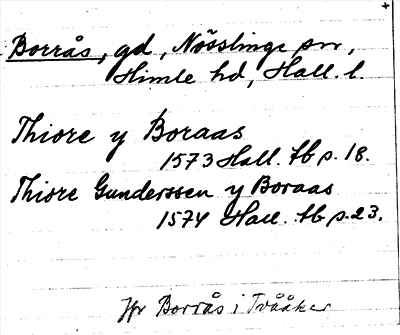 Borrås, gd, Nösslinge sn,
Himle hd, Hall. l.
Thiore y Boraas
1573 Hall. tb p. 18.
Thiore Gunderssen y Boraas
1574 Hall. tb p. 23.
Jfr Borrås i Tvååker